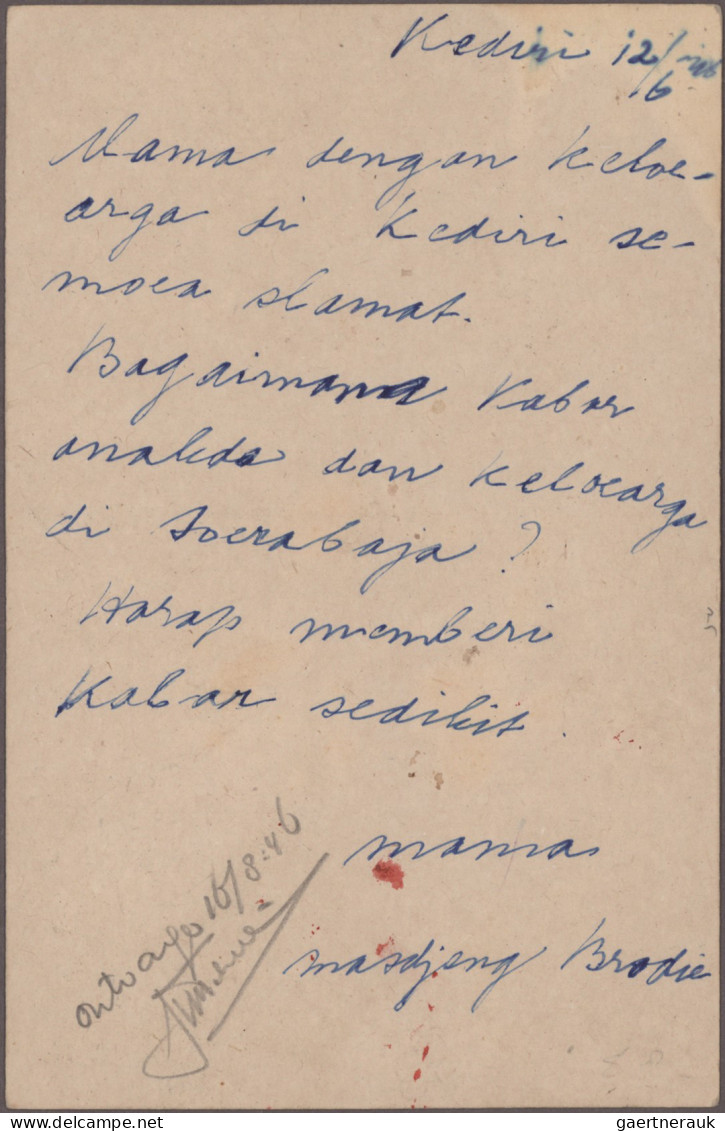 Kediri 12/6
Mama dengan keloe-
arga di Kediri se-
moea slamat.
Bagaimana Kabar
anakda dan keloearga
di Soerabaja?
Harap memberi
Kabar sedikit.
mama
masdjeng Brodie
16/8.46
gaertnerauk